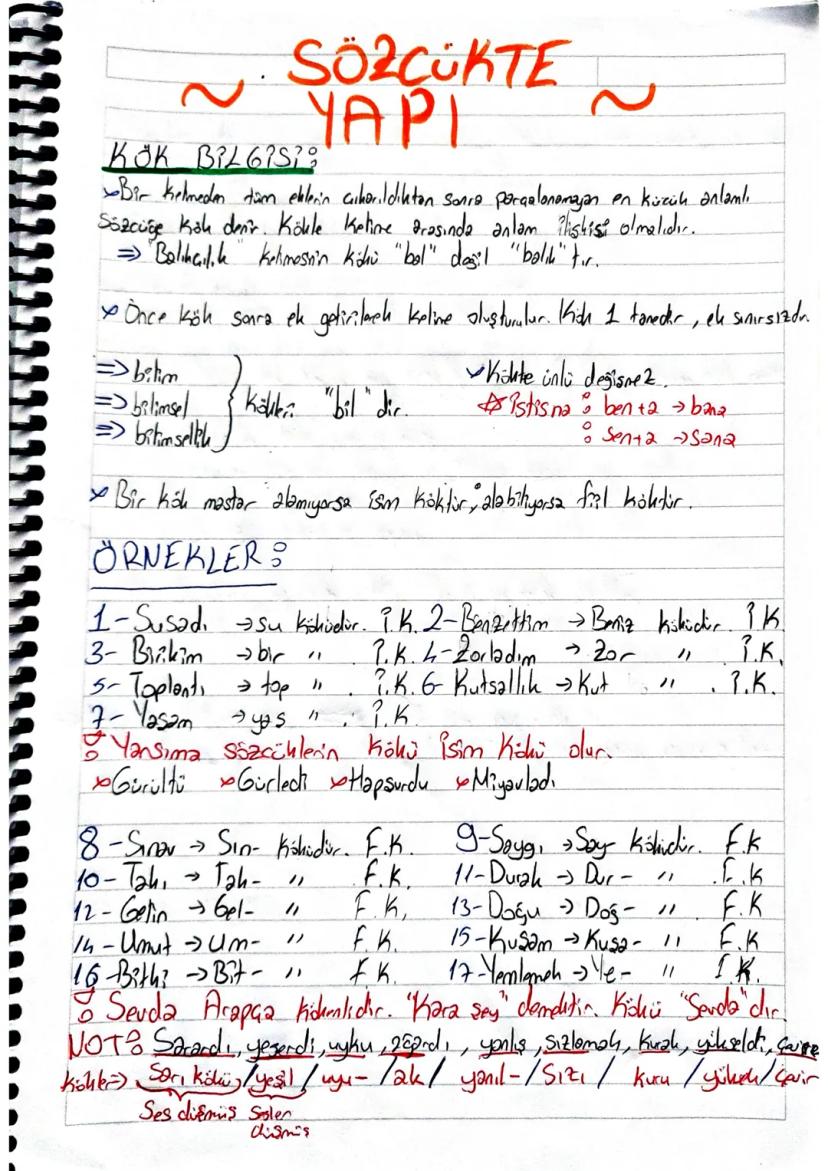 ~ SÖZCÜKTE ~
YAPI
KÖK BİLGİSİ:
Bir kelimeden tüm eklerin çıkarıldıktan sonra parçalanamayan en küçük anlamlı
sözcüğe kök denir. Kökle kelime arasında anlam ilişkisi olmalıdır.
⇒ "Balıkçılık" kelimesinin kökü "bal" değil "balık"tır.
Önce kök sonra ek getirilerek kelime oluşturulur. Kök 1 tanedir, ek sınırsızdır.
⇒ bilim
⇒ bilimsel } Kökleri "bil" dir.
⇒ bilimsellik
Kökte ünlü değişmez.
İstisna : ben+a → bana
: sen+a → sana
Bir kök mastar alamıyorsa isim köktür, alabiliyorsa fiil köktür.
ÖRNEKLER:
1- Susadı → su köküdür. İ.K. 2- Benzettim → Beniz köküdür. İ K
3- Birikim → bir " İ.K. 4- Zorladım → Zor " İ.K.
5- Toplantı → top " . İ.K. 6- Kutsallık → Kut " . İ.K.
7- Yaşam → yaş " . İ.K
! Yansıma sözcüklerin kökü isim kökü olur.
Gürültü Gürledi Hapşurdu Miyavladı
8- Sınav → Sın- köküdür. F.K. 9- Saygı → Say- köküdür. F.K
10- Takı → Tak- " F.K. 11- Durak → Dur- " F.K
12- Gelin → Gel- " F.K. 13- Doğu → Doğ- " F.K
14- Umut → Um- " F.K. 15- Kuşam → Kuşa- " F.K
16- Bitki → Bit- " F.K. 17- Yemlemek → Ye- " İ.K.
! Sevda Arapça kökenlidir. "Kara şey" demektir. Kökü "Sevda"dır
NOT: Sarardı, yeşerdi, uyku, ağardı, yanlış, sızlamak, kurak, yükseldi, çevre
Kökler ⇒ Sarı kökü / yeşil / uyu- / ak / yanıl- / Sızı / kuru / yüksek / çevir
Ses düşmüş Sesler
düşmüş